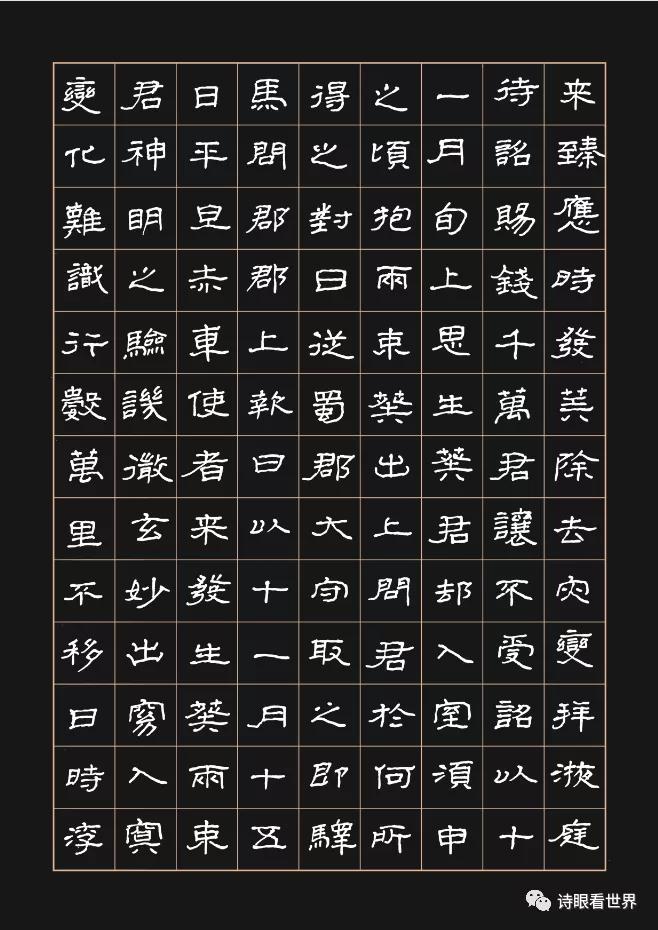 来臻應時發筭除去灾變拜掖庭
待詔賜錢千萬君讓不受詔以十
一月旬上思生葵君却入室須申
之頃抱兩束葵出上問君於何所
得之對曰從蜀郡大守取之即驛
馬問郡郡上報曰以十一月十五
日平旦赤車使者来發生葵兩束
君神明之驗譏徹玄妙出窈入冥
變化難識行數萬里不移日時浮
诗眼看世界